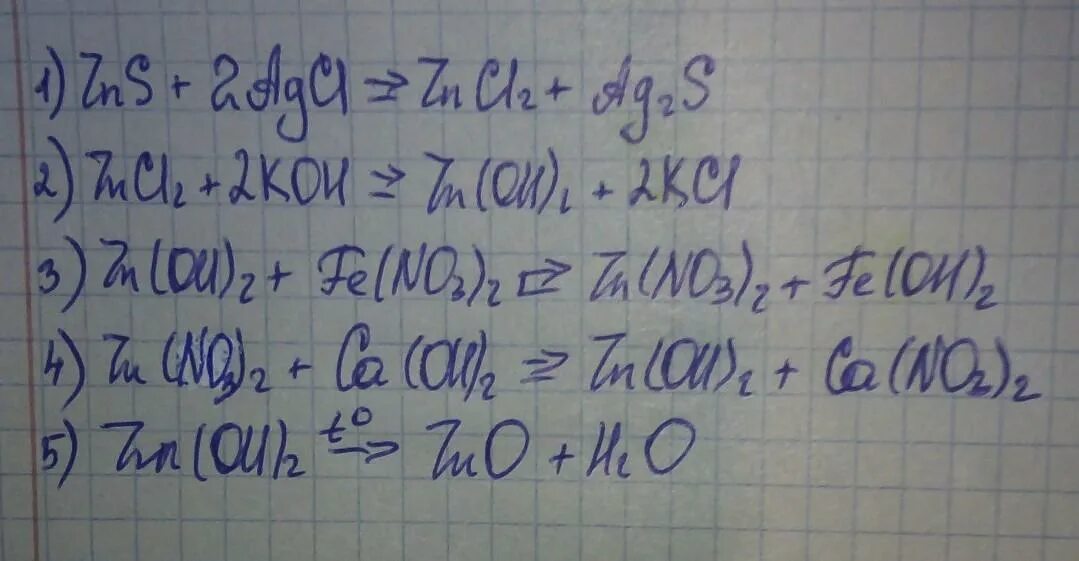 1) ZnS + 2AgCl ⇒ ZnCl₂ + Ag₂S
2) ZnCl₂ + 2KOH ⇒ Zn(OH)₂ + 2KCl
3) Zn(OH)₂ + Fe(NO₃)₂ ⇒ Zn(NO₃)₂ + Fe(OH)₂
4) Zn(NO₃)₂ + Ca(OH)₂ ⇒ Zn(OH)₂ + Ca(NO₂)₂
5) Zn(OH)₂ t⁰→ ZnO + H₂O